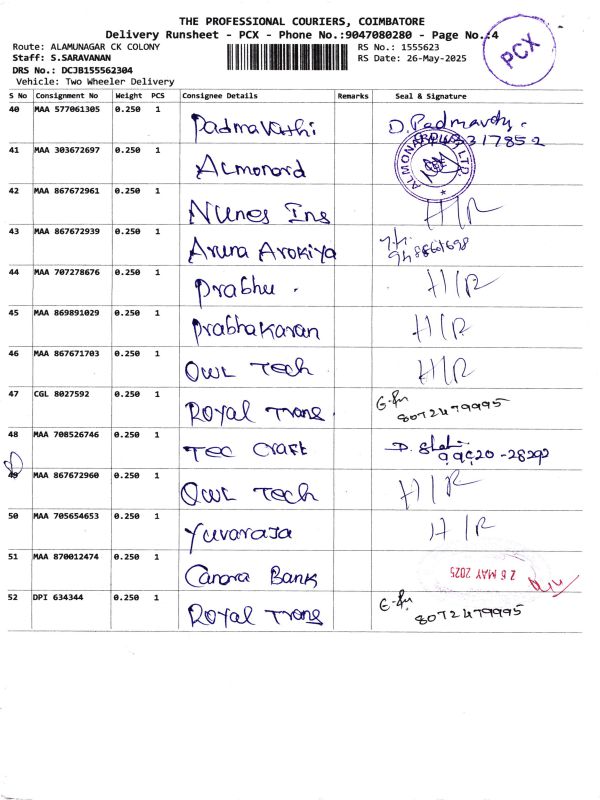 THE PROFESSIONAL COURIERS, COIMBATORE
Delivery Runsheet - PCX - Phone No.:9047080280 - Page No.:4
PCX
Route: ALAMUNAGAR CK COLONY
RS No.: 1555623
Staff: S.SARAVANAN
RS Date: 26-May-2025
DRS No.: DCJB155562304
Vehicle: Two Wheeler Delivery
S No Consignment No Weight PCS Consignee Details Remarks Seal & Signature
40 MAA 577061305 0.250 1 Padmavathi D. Padmavathy.
41 MAA 303672697 0.250 1 Almonard
ALMONARD (P) LTD.
42 MAA 867672961 0.250 1 Nunes Ins H/R
43 MAA 867672939 0.250 1 Aruna Arokiya
44 MAA 707278676 0.250 1 Prabhu . H/R
45 MAA 869891029 0.250 1 Prabhakaran H/R
46 MAA 867671703 0.250 1 Owl Tech H/R
47 CGL 8027592 0.250 1 Royal Trans 8072479995
48 MAA 708526746 0.250 1 Tec Craft D. 99920-28292
49 MAA 867672960 0.250 1 Owl Tech H/R
50 MAA 705654653 0.250 1 Yuvaraja H/R
51 MAA 870012474 0.250 1 Canara Bank 26 MAY 2025
52 DPI 634344 0.250 1 Royal Trans 8072479995